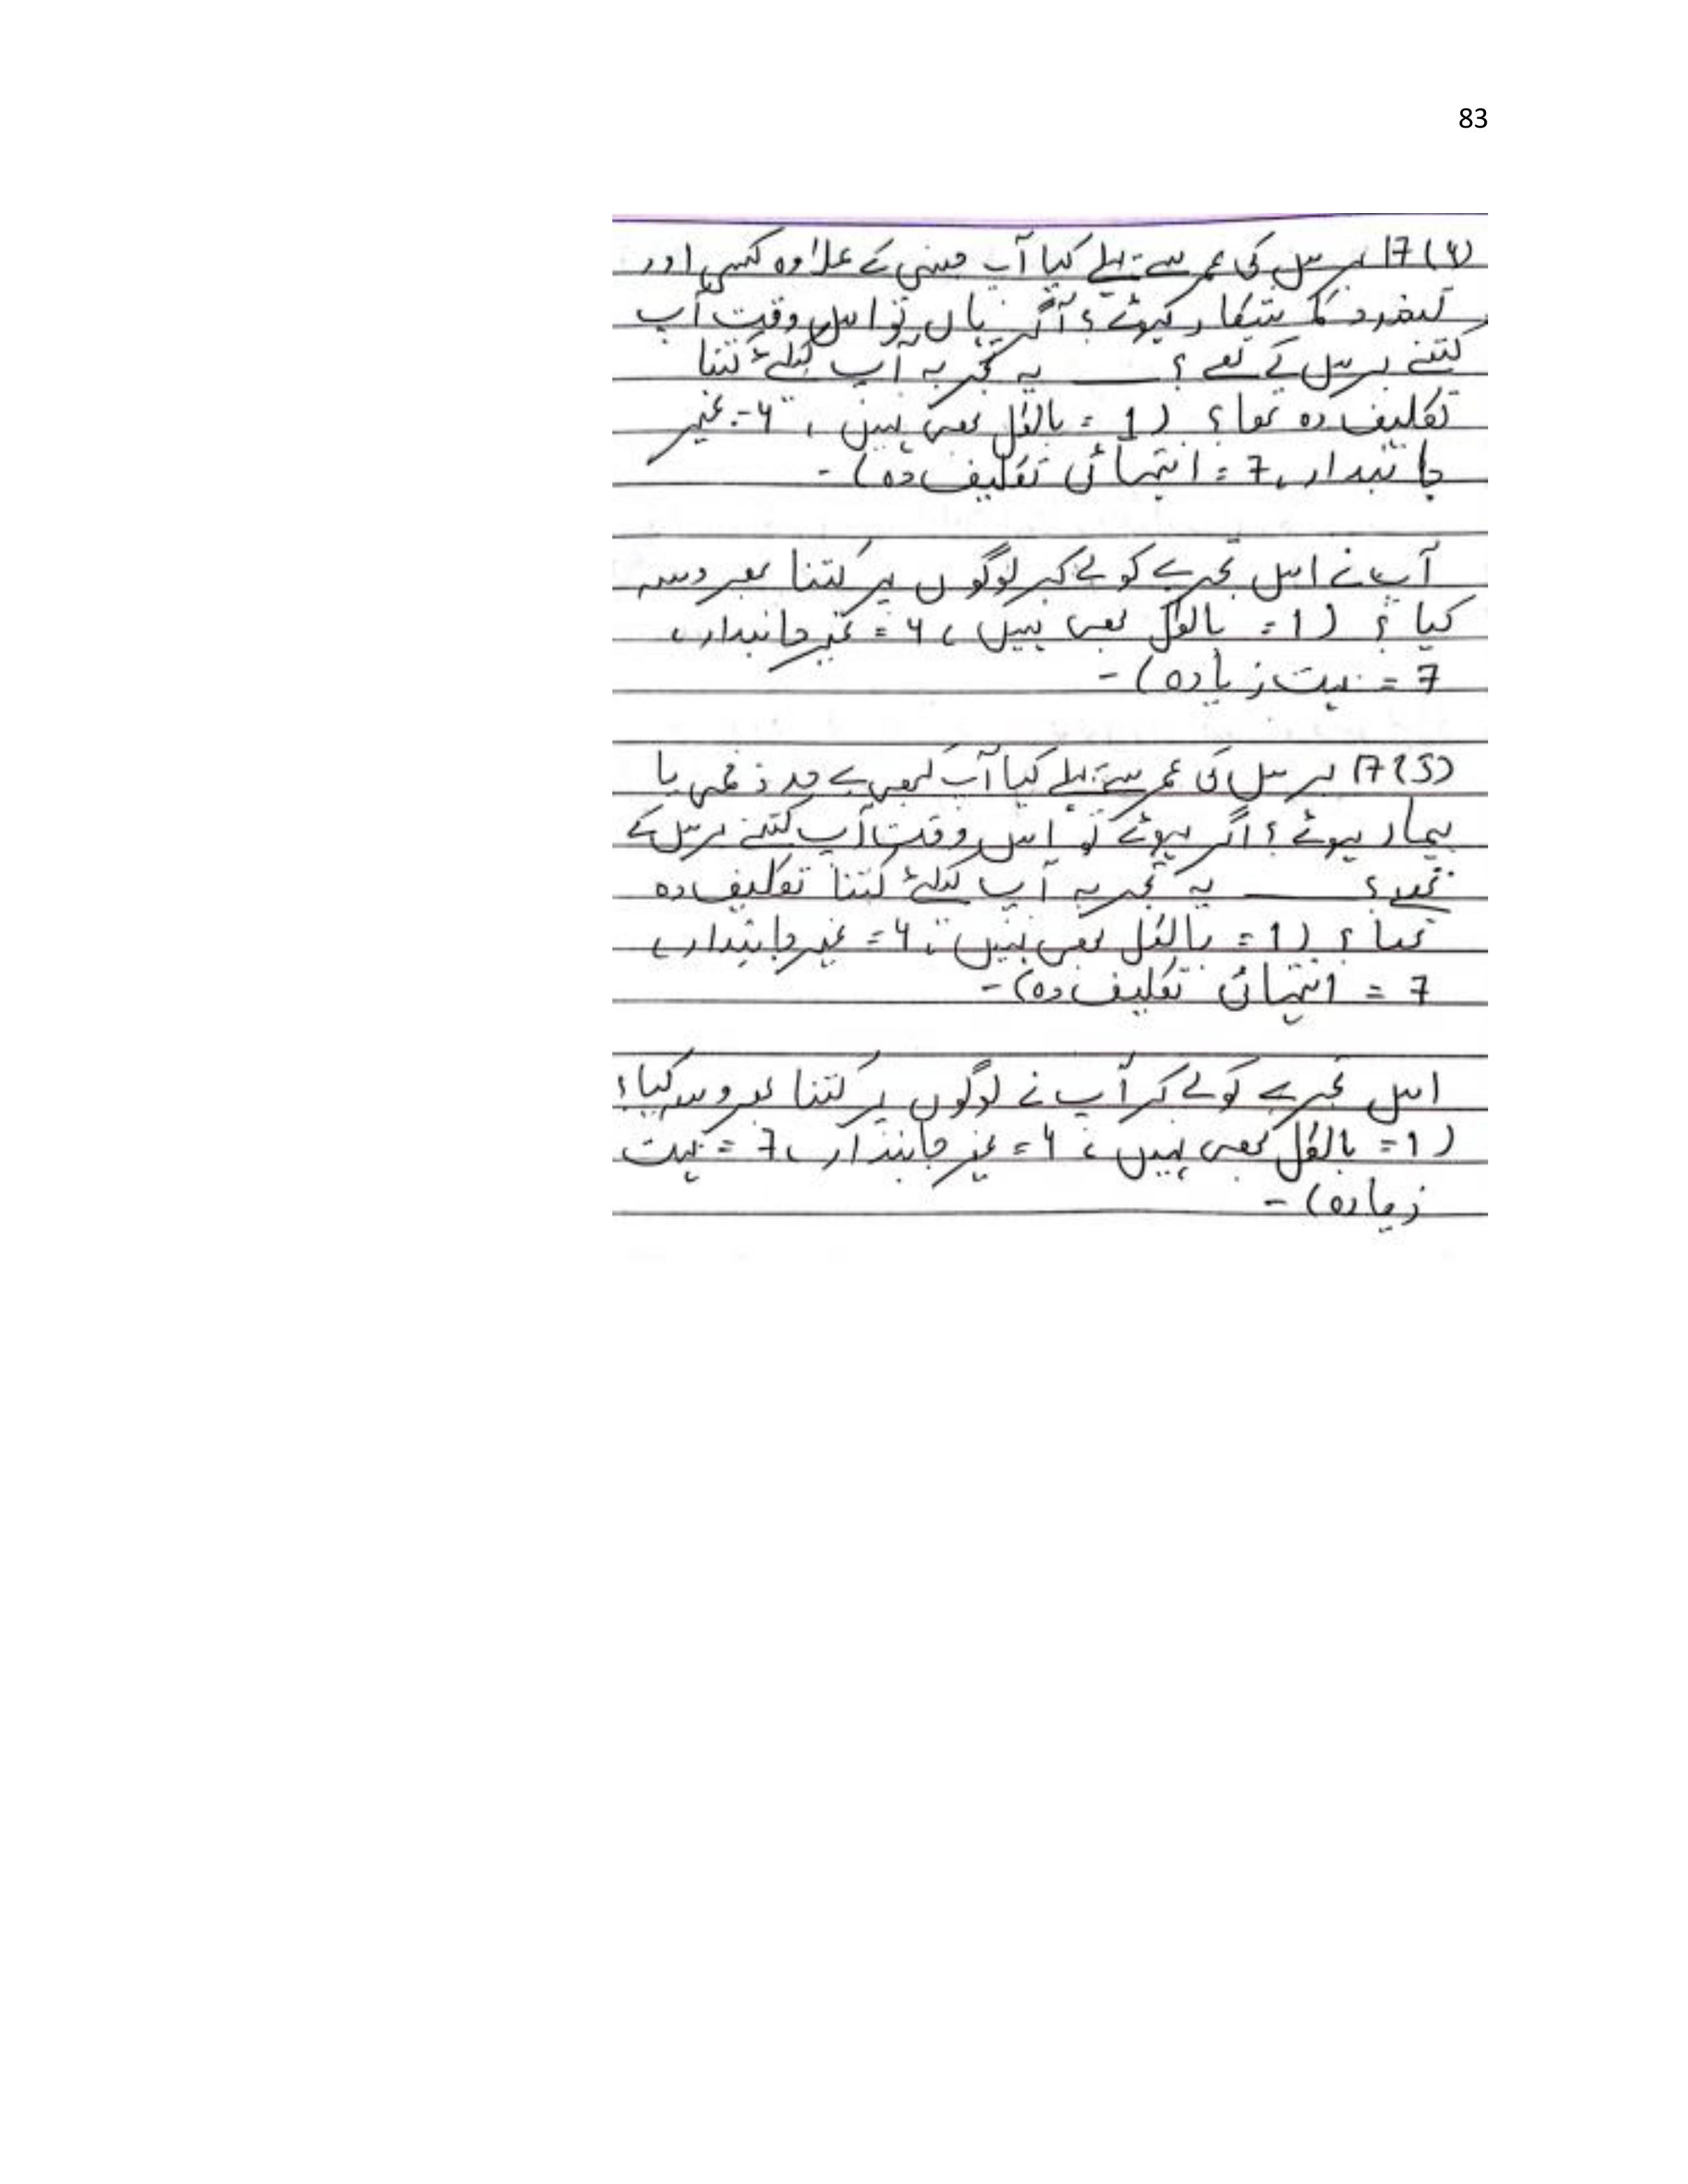 83
(4) 17 برس کی عمر سے پہلے کیا آپ جنسی کے علاوہ کسی اور
تشدد کا شکار ہوئے؟ اگر ہاں تو اس وقت آپ
کتنے برس کے تھے؟ ____ یہ تجربہ آپ کیلئے کتنا
تکلیف دہ تھا؟ (1 = بالکل بھی نہیں، 4 = غیر
جانبدار، 7 = انتہائی تکلیف دہ)۔
آپ نے اس تجربے کو لے کر لوگوں پر کتنا بھروسہ
کیا؟ (1 = بالکل بھی نہیں، 4 = غیر جانبدار،
7 = بہت زیادہ)۔
(5) 17 برس کی عمر سے پہلے کیا آپ کبھی بے حد زخمی یا
بیمار ہوئے؟ اگر ہوئے تو اس وقت آپ کتنے برس کے
تھے؟ ____ یہ تجربہ آپ کیلئے کتنا تکلیف دہ
تھا؟ (1 = بالکل بھی نہیں، 4 = غیر جانبدار،
7 = انتہائی تکلیف دہ)۔
اس تجربے کو لے کر آپ نے لوگوں پر کتنا بھروسہ کیا؟
(1 = بالکل بھی نہیں، 4 = غیر جانبدار، 7 = بہت
زیادہ)۔